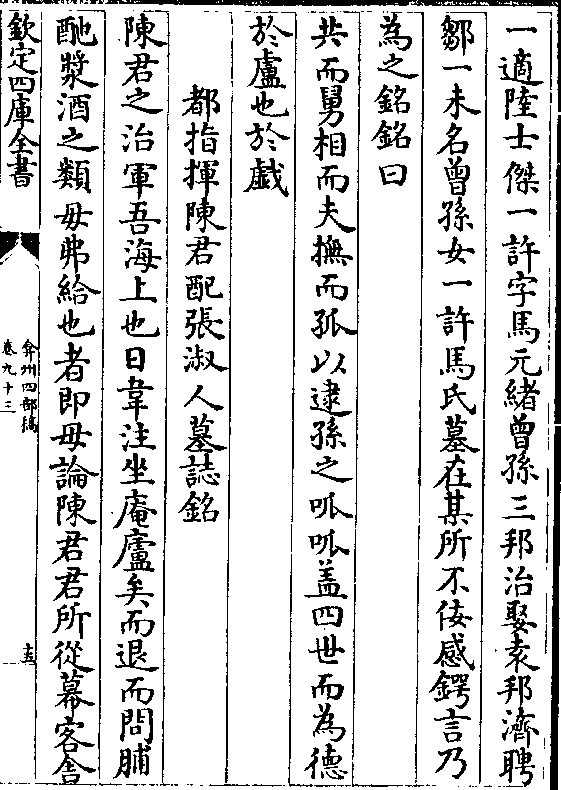 一適陸士傑一許字馬元緒曾孫三邦治娶袁邦濟聘
鄒一未名曾孫女一許馬氏墓在某所不佞感鍔言乃
為之銘銘曰
共而舅相而夫撫而孤以逮孫之呱呱盖四世而為德
於盧也於戯
都指揮陳君配張淑人墓誌銘
陳君之治軍吾海上也日韋注坐庵廬矣而退而問脯
酏漿酒之類毋弗給也者即毋論陳君君所從幕客舍
欽定四庫全書
弇州四部稿
卷九十三